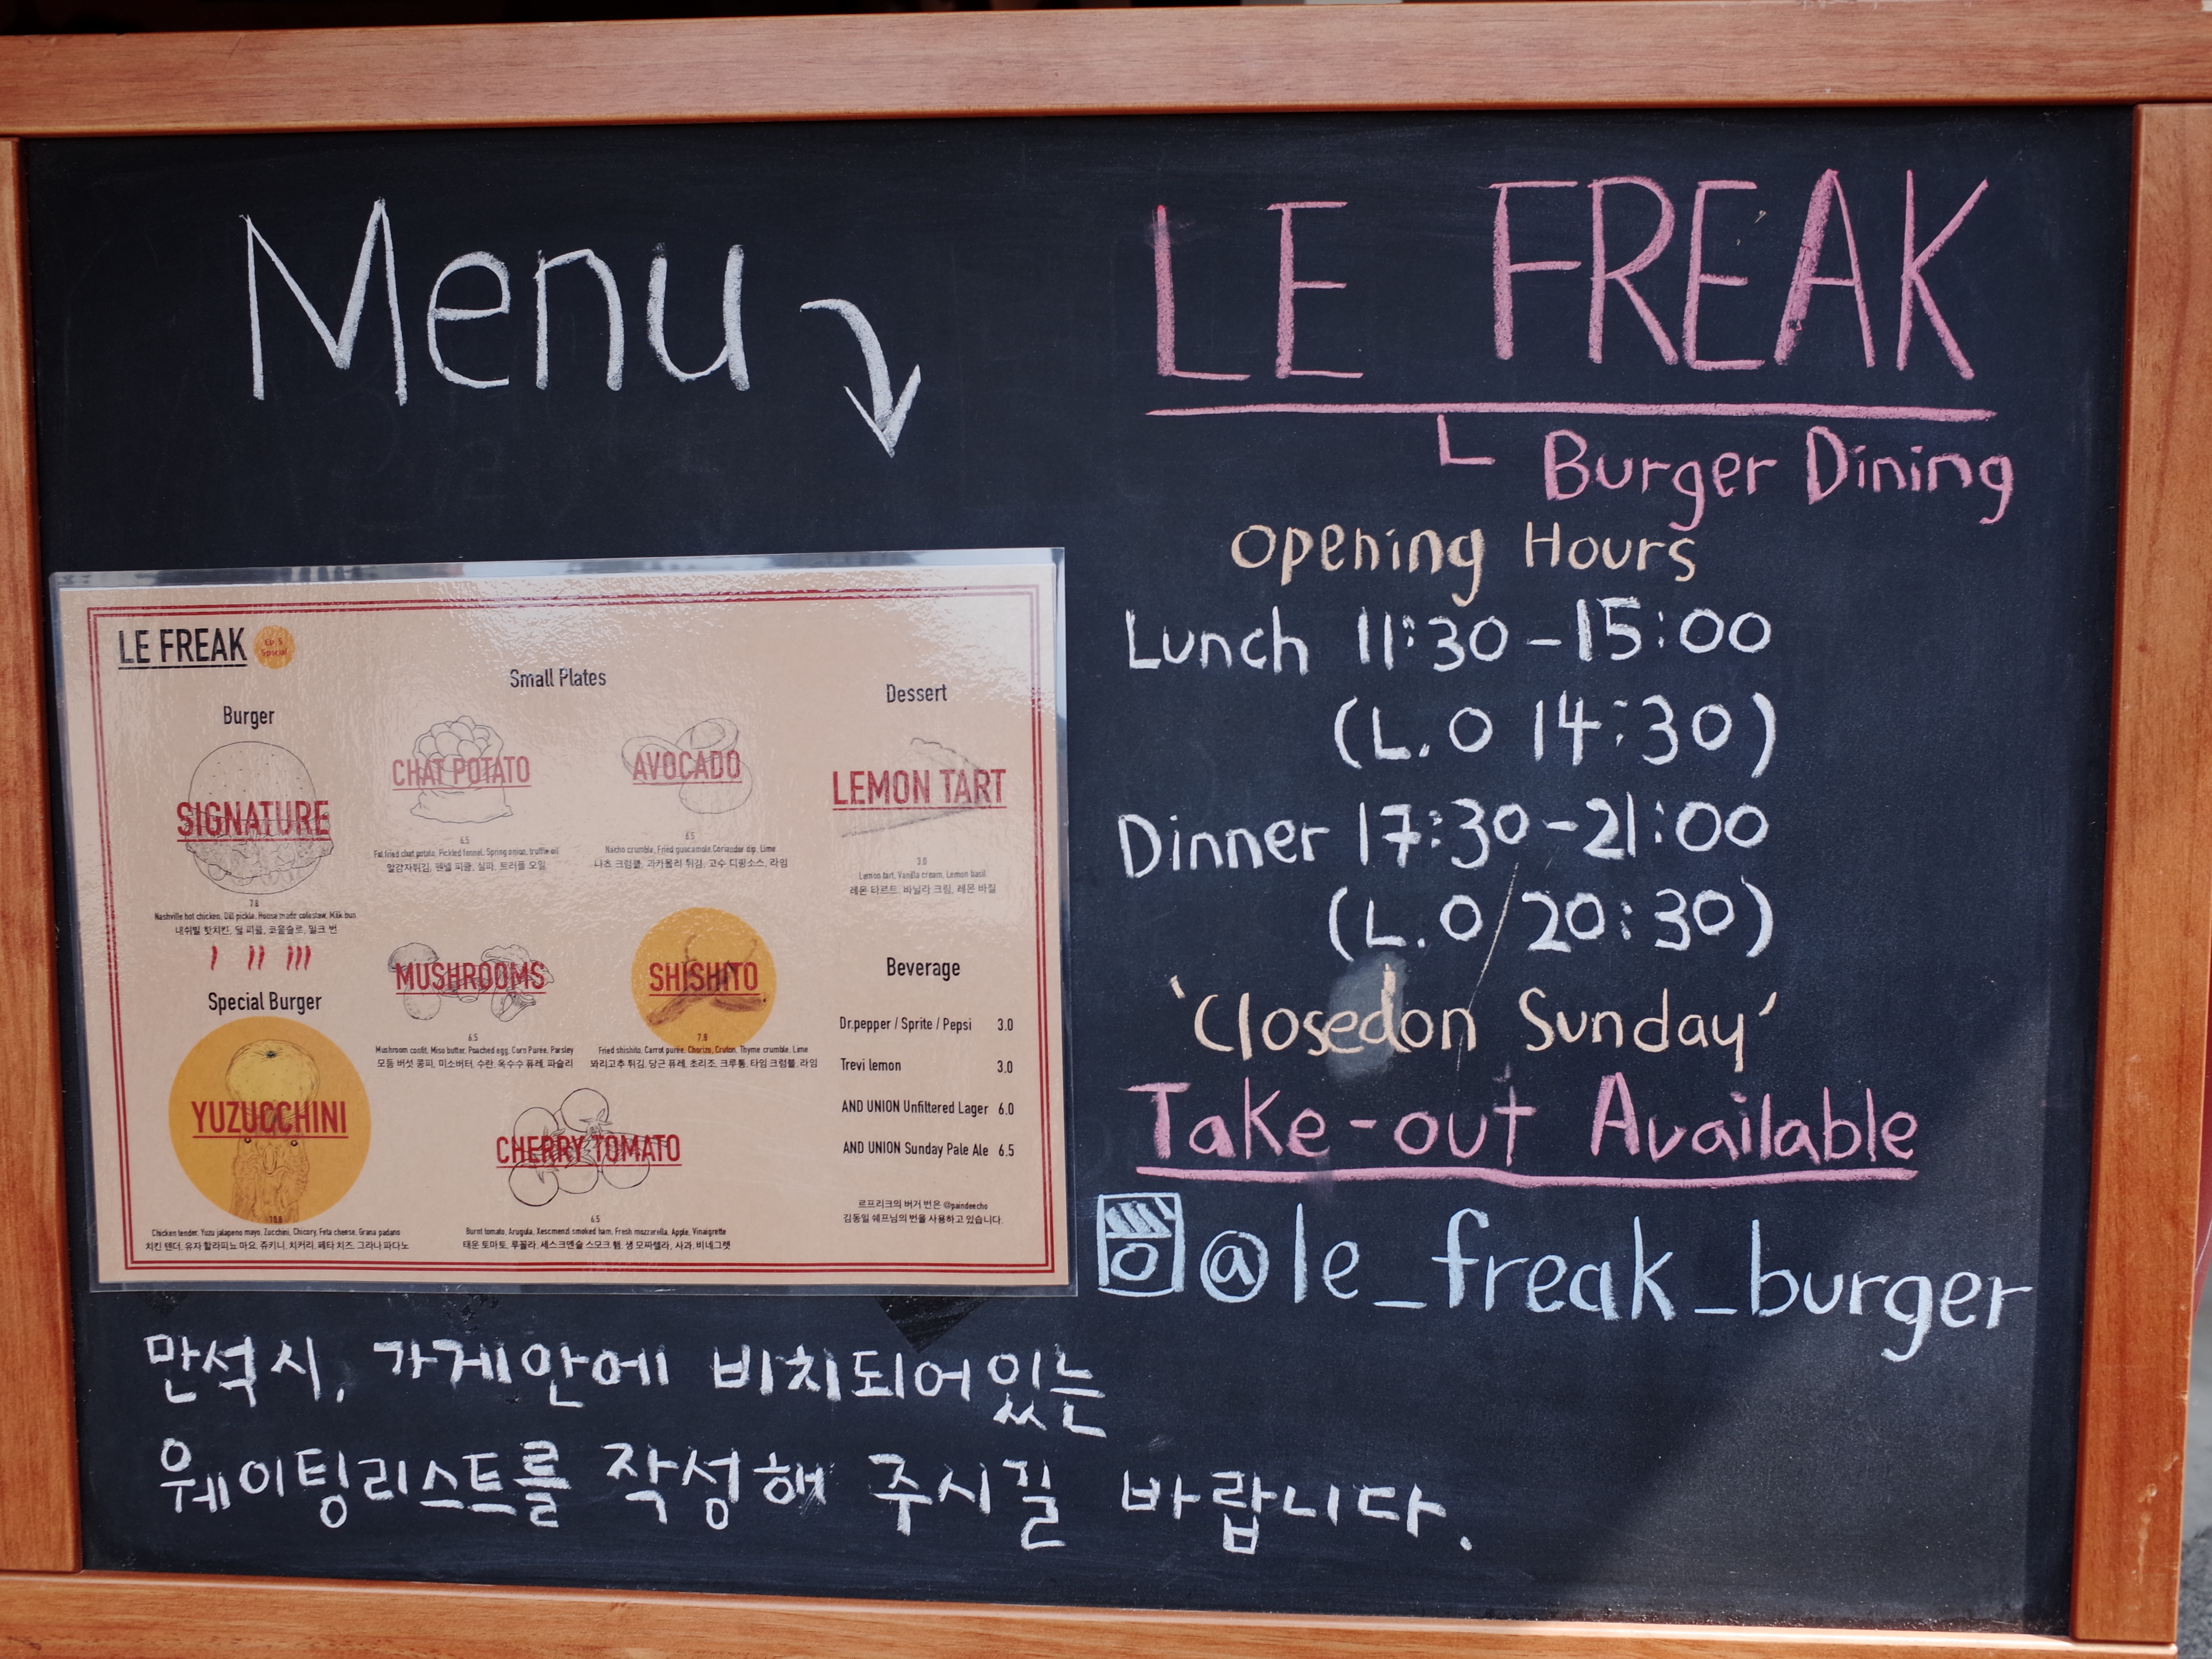 Menu
LE FREAK
Burger Dining
Opening Hours
Lunch 11:30-15:00
(L.O 14:30)
Dinner 17:30-21:00
(L.O 20:30)
'Closedon Sunday'
Take-out Available
@le_freak_burger
LE FREAK
Ep.5
Special
Burger
SIGNATURE
7.8
Nashville hot chicken, Dill pickle, House made coleslaw, Milk bun
내쉬빌 핫치킨, 딜 피클, 코울슬로, 밀크 번
Special Burger
YUZUCCHINI
Chicken tender, Yuzu jalapeno mayo, Zucchini, Chicory, Feta cheese, Grana padano
치킨 텐더, 유자 할라피뇨 마요, 쥬키니, 치커리, 페타 치즈, 그라나 파다노
Small Plates
CHAT POTATO
6.5
Fat fried chat potato, Pickled fennel, Spring onion, truffle oil
알감자튀김, 펜넬 피클, 실파, 트러플 오일
AVOCADO
6.5
Nacho crumble, Fried guacamole, Coriander dip, Lime
나쵸 크럼블, 과카몰리 튀김, 고수 디핑소스, 라임
MUSHROOMS
6.5
Mushroom confit, Miso butter, Poached egg, Corn Puree, Parsley
모듬 버섯 콩피, 미소버터, 수란, 옥수수 퓨레, 파슬리
SHISHITO
7.8
Fried shishito, Carrot purée, Chorizo, Cruton, Thyme crumble, Lime
꽈리고추 튀김, 당근 퓨레, 초리조, 크루통, 타임 크럼블, 라임
CHERRY TOMATO
6.5
Burnt tomato, Arugula, smoked ham, Fresh mozzarella, Apple, Vinaigrette
태운 토마토, 루꼴라, 세스크멘슬 스모크 햄, 생 모짜렐라, 사과, 비네그렛
Dessert
LEMON TART
3.0
Lemon tart, Vanilla cream, Lemon basil
레몬 타르트, 바닐라 크림, 레몬 바질
Beverage
Dr.pepper / Sprite / Pepsi 3.0
Trevi lemon 3.0
AND UNION Unfiltered Lager 6.0
AND UNION Sunday Pale Ale 6.5
르프리크의 버거 번은 @paindeecho
김동일 쉐프님의 번을 사용하고 있습니다.
만석시, 가게안에 비치되어있는
웨이팅리스트를 작성해 주시길 바랍니다.